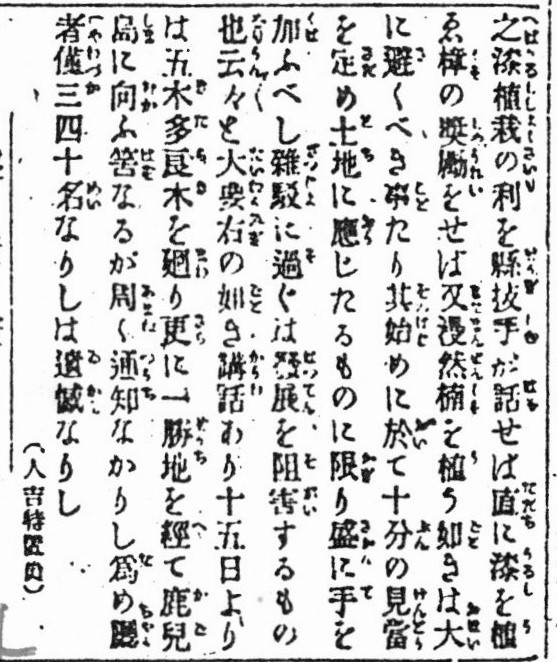 之漆植栽の利を縣技手が話せば直に漆を植
ゑ樟の奬勵をせば又漫然楠を植う如きは大
に避くべき事たり其始めに於て十分の見當
を定め土地に應じたるものに限り盛に手を
加ふべし雜駁に過ぐは發展を阻害するもの
也云々と大要右の如き講話あり十五日より
は五木多良木を廻り更に一勝地を經て鹿兒
島に向ふ筈なるが周く通知なかりし爲め聽
者僅三四十名なりしは遺憾なりし
(人吉特置員)